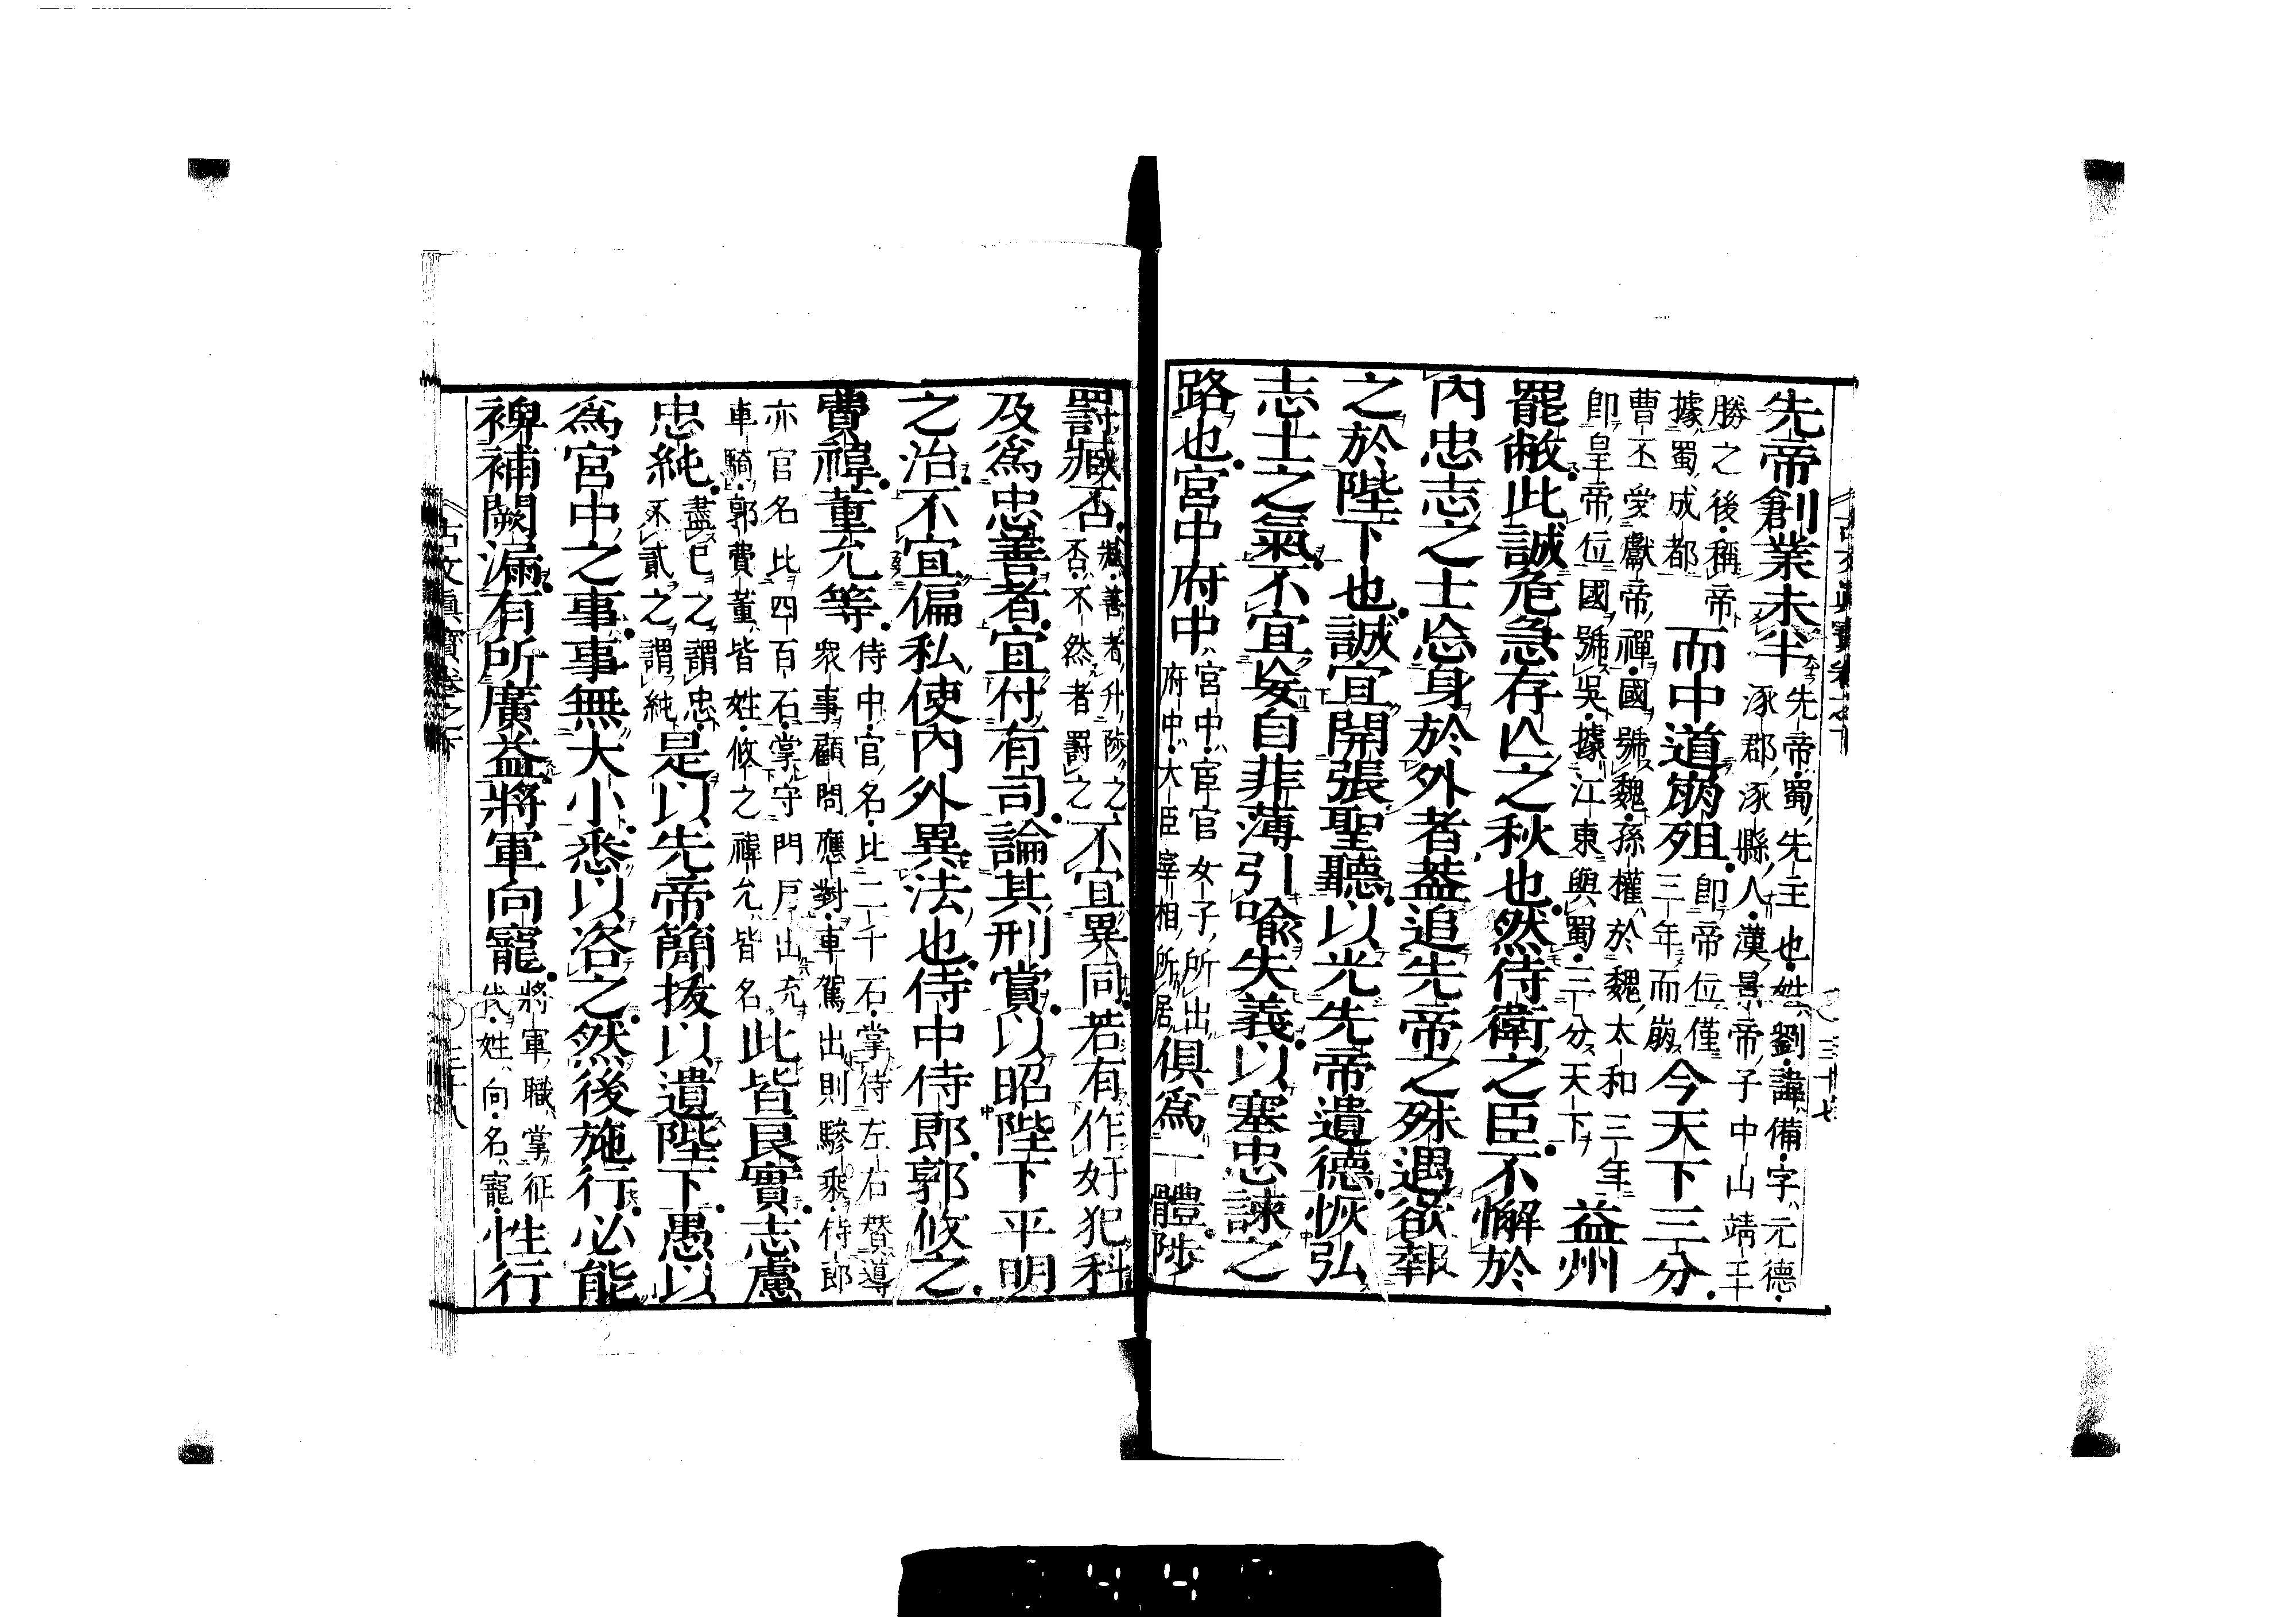 古文眞寶卷之下 三十七
先帝創業未半先帝蜀先主也姓劉諱備字元德涿郡涿縣人漢景帝子中山靖王
勝之後稱帝據蜀成都而中道崩殂即帝位僅三年而崩今天下三分
曹丕受獻帝禪國號魏孫權於魏太和三年即皇帝位國號吳據江東與蜀三分天下益州
罷敝此誠危急存亡之秋也然侍衛之臣不懈於
內忠志之士忘身於外者蓋追先帝之殊遇欲報
之於陛下也誠宜開張聖聽以光先帝遺德恢弘
志士之氣不宜妄自菲薄引喻失義以塞忠諫之
路也宮中府中宮中宦官女子所出府中大臣宰相所居俱爲一體陟
罰臧否臧善者升陟之否不然者罰之不宜異同若有作奸犯科
及爲忠善者宜付有司論其刑賞以昭陛下平明
之治不宜偏私使內外異法也侍中侍郎郭攸之
費禕董允等侍中官名比二千石掌侍左右賛導衆事顧問應對車駕出則驂乘侍郎
亦官名比四百石掌守門戶出充車騎郭費董皆姓攸之禕允皆名此皆良實志慮
忠純盡己之謂忠不貳之謂純是以先帝簡拔以遺陛下愚以
爲宮中之事事無大小悉以咨之然後施行必能
裨補闕漏有所廣益將軍向寵將軍職掌征伐姓向名寵性行
古文眞寶卷之下 三十八